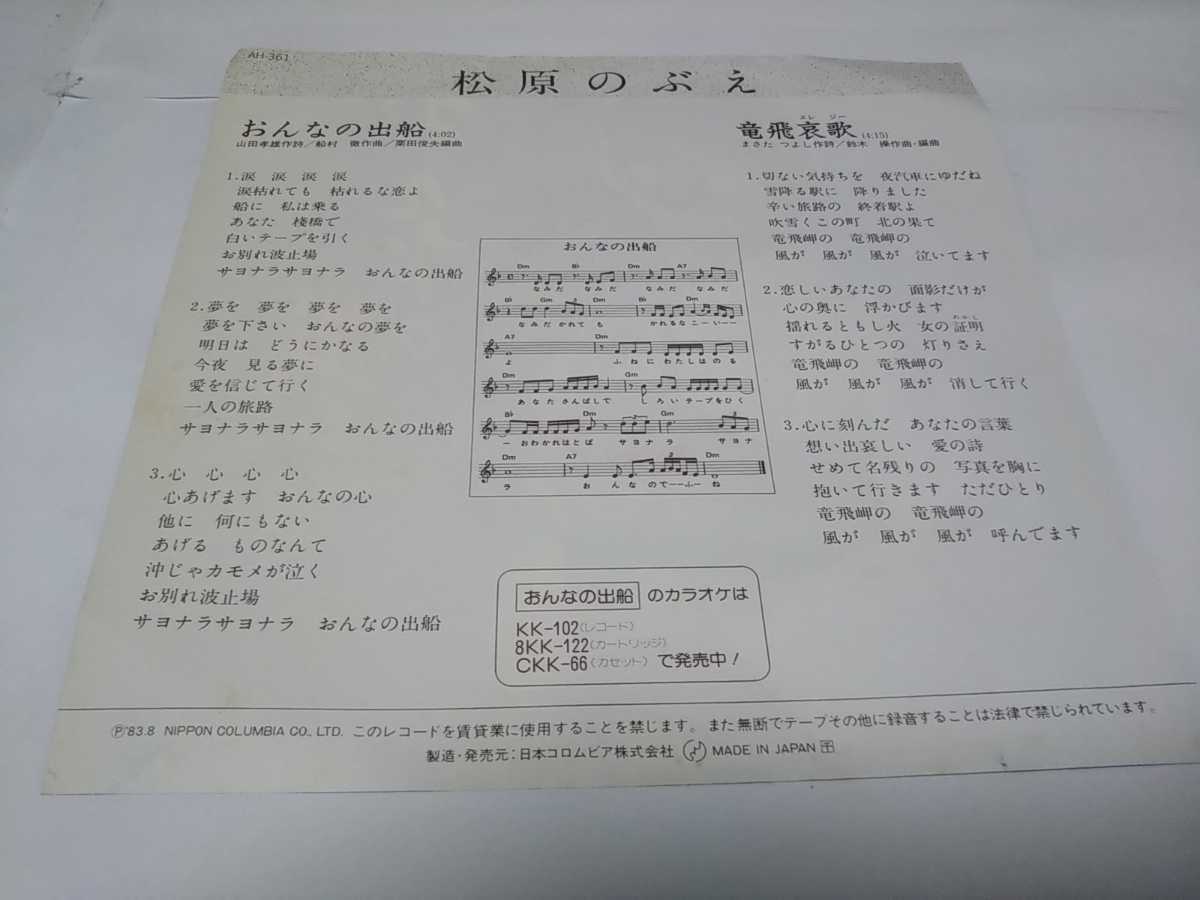 AH-361
松原のぶえ
おんなの出船(4:02)
山田孝雄作詩/船村 徹作曲/栗田俊夫編曲
1.涙 涙 涙 涙
涙枯れても 枯れるな恋よ
船に 私は乗る
あなた 棧橋で
白いテープを引く
お別れ波止場
サヨナラサヨナラ おんなの出船
2.夢を 夢を 夢を 夢を
夢を下さい おんなの夢を
明日は どうにかなる
今夜 見る夢に
愛を信じて行く
一人の旅路
サヨナラサヨナラ おんなの出船
3.心 心 心 心
心あげます おんなの心
他に 何にもない
あげる ものなんて
沖じゃカモメが泣く
お別れ波止場
サヨナラサヨナラ おんなの出船
おんなの出船
Dm B♭ Dm A7
なみだ なみだ なみだ なみだ
B♭ Gm Dm B♭ Dm
なみだ かれて も かれるなこーいーー
A7 Dm
よ ふねにわたしはのる
Dm Gm
あなたさんばしで しろいテープをひく
B♭ Dm Gm
ーおわかれはとば サヨナラ サヨナ
Dm A7 Dm
ラ おんなのでーーふーね
エレジー
竜飛哀歌(4:15)
まさた つよし作詩/鈴木 操作曲・編曲
1.切ない気持ちを 夜汽車にゆだね
雪降る駅に 降りました
辛い旅路の 終着駅よ
吹雪くこの町 北の果て
竜飛岬の 竜飛岬の
風が 風が 風が 泣いてます
2.恋しいあなたの 面影だけが
心の奥に 浮かびます
揺れるともし火 女の証明
すがるひとつの 灯りさえ
竜飛岬の 竜飛岬の
風が 風が 風が 消して行く
3.心に刻んだ あなたの言葉
想い出哀しい 愛の詩
せめて名残りの 写真を胸に
抱いて行きます ただひとり
竜飛岬の 竜飛岬の
風が 風が 風が 呼んでます
おんなの出船 のカラオケは
KK-102(レコード)
8KK-122(カートリッジ)
CKK-66(カセット) で発売中!
Ⓟ'83.8 NIPPON COLUMBIA CO., LTD. このレコードを賃貸業に使用することを禁じます。また無断でテープその他に録音することは法律で禁じられています。
製造・発売元:日本コロムビア株式会社 MADE IN JAPAN